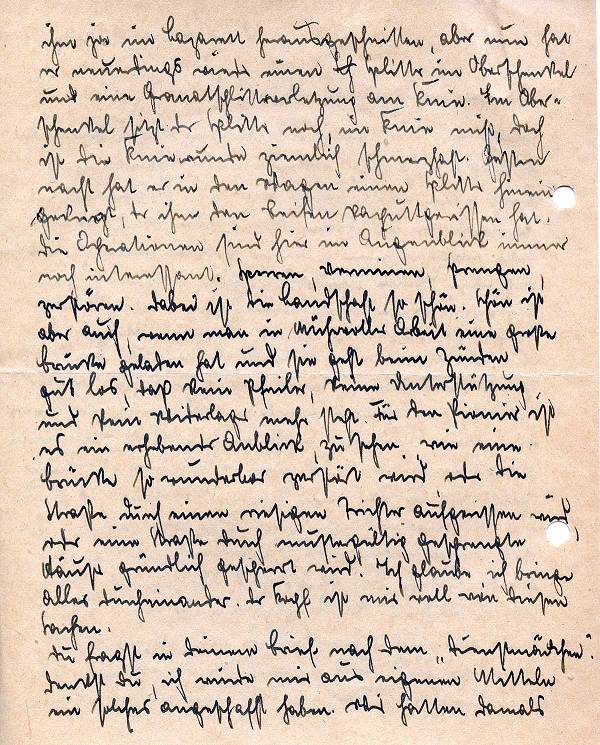 ihm zwar im Lazarett herausgeschnitten, aber nun hat
er neuerdings wieder einen Splitter im Oberschenkel
und eine Granatsplitterverletzung am Knie. Im Ober-
schenkel sitzt der Splitter noch, im Knie nicht, doch
ist die Kniewunde ziemlich schmerzhaft. Gestern
nacht hat er in den Wagen einen Splitter hinein
gekriegt, der ihm den Reifen
Die Situationen sind hier im Augenblick immer
noch interessant. Sperren, verminen, sprengen,
zerstören. Dabei ist die Landschaft so schön. Schön ist
aber auch, wenn man in mühevoller Arbeit eine große
Brücke geladen hat und sie geht beim Zünden
gut los, daß kein Pfeiler, keine Unterstützung
und kein Widerlager mehr steht. Für den Pionier ist
es ein erhebender Anblick, zu sehen, wie eine
Brücke so wunderbar zerstört wird, oder die
Straße durch einen riesigen Trichter aufgerissen wird,
oder eine Straße durch mustergültig gesprengte
Häuser gründlich gesperrt wird! Ich glaube ich bringe
alles durcheinander. Der Kopf ist mir voll von diesen
Sachen.
Du fragst in deinem Brief nach dem "Dienstmädchen".
Denkst Du, ich würde mir aus eigenen Mitteln
ein solches angeschafft haben. Wir hatten damals